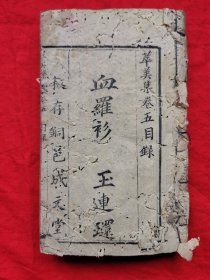 萃美集卷五目錄
血羅衫 玉連環
板存銅邑成文堂